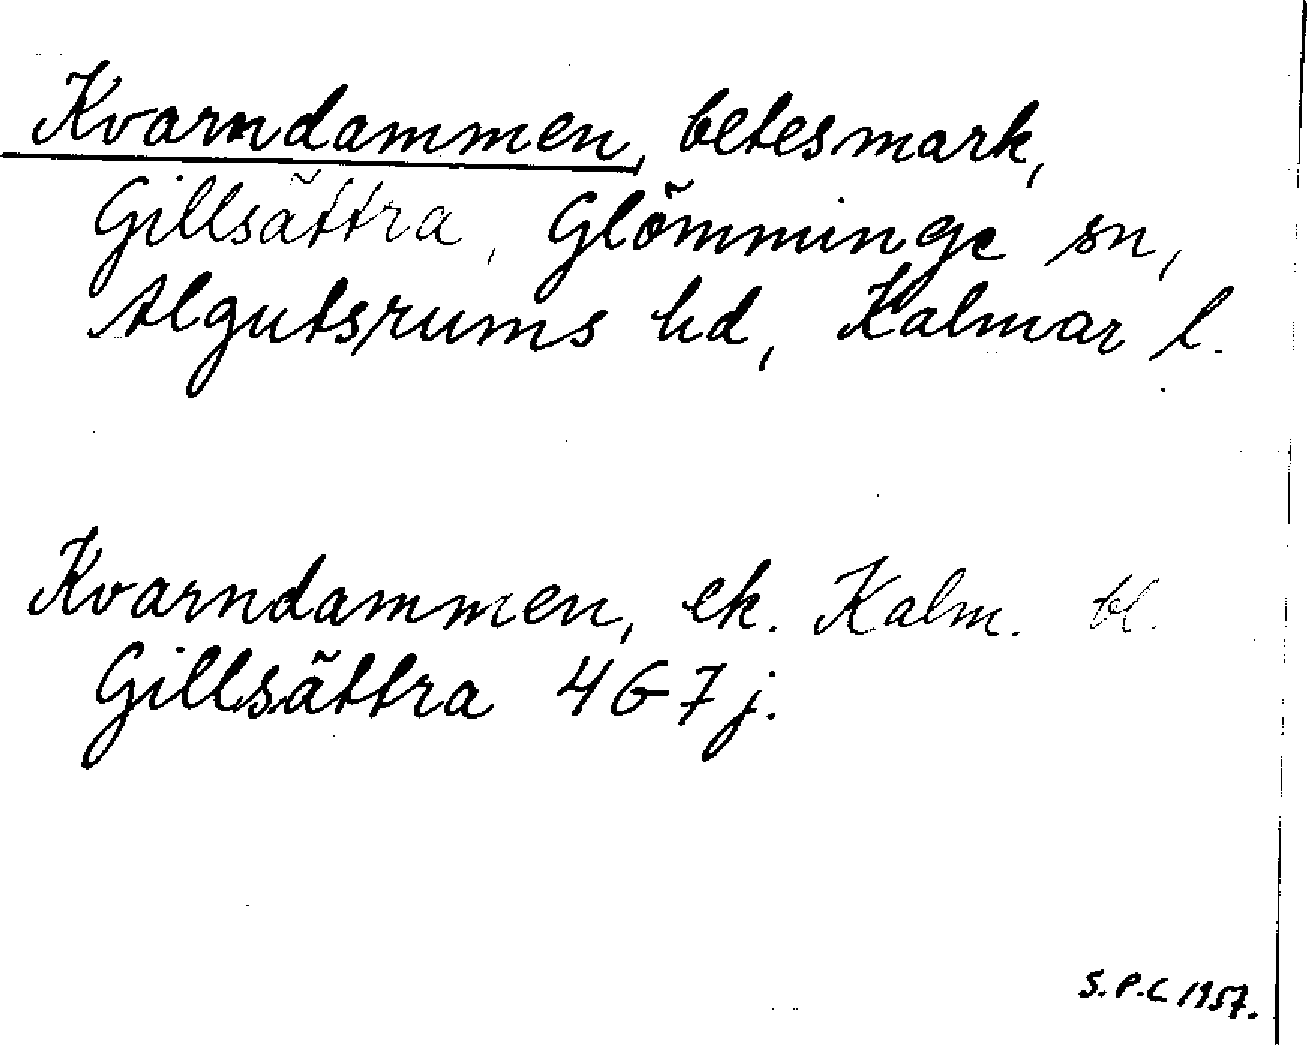 Kvarndammen, betesmark,
Gillsättra, Glömminge sn,
Algutsrums hd, Kalmar l.
Kvarndammen, ek. Kalm. bl.
Gillsättra 4G7j.
S.P.C 1957.